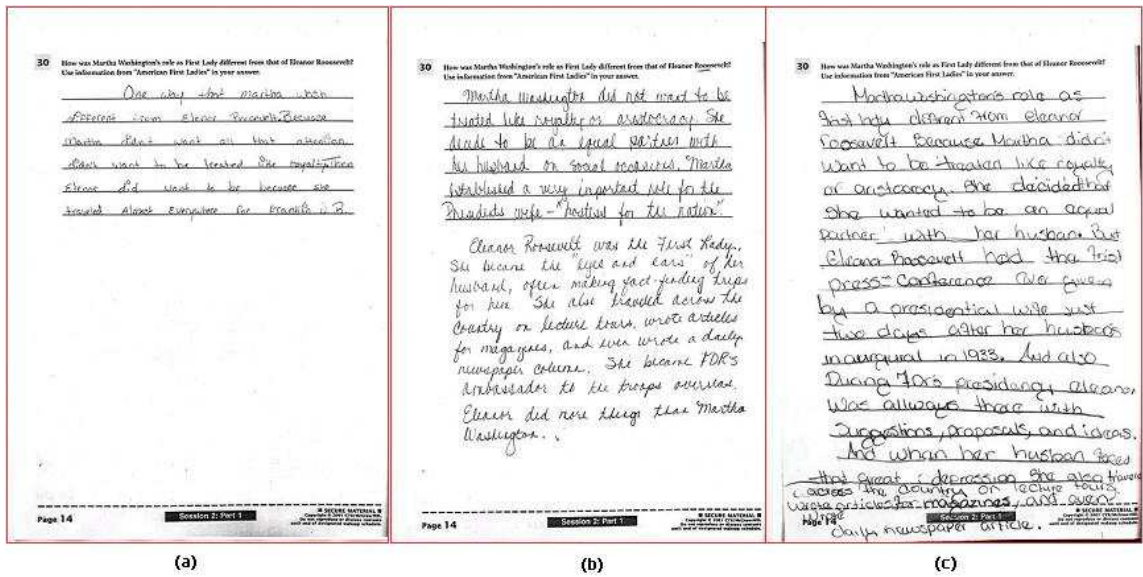 30 How was Martha Washington's role as First Lady different from that of Eleanor Roosevelt?
Use information from "American First Ladies" in your answer.
One way that martha wash
different from Elenor Roosevelt. Because
Martha didn't want all that attention
didn't want to be treated like royalty. Then
Elenor did want to be because she
traveled Almost Everywhere for Franklin D. R.
Page 14
Session 2: Part 1
SECURE MATERIAL
(a)
30 How was Martha Washington's role as First Lady different from that of Eleanor Roosevelt?
Use information from "American First Ladies" in your answer.
Martha Washington did not want to be
treated like royalty or aristocracy. She
decide to be an equal partner with
her husband on social occasions. Martha
established a very important role for the
Presidents wife - "hostess for the nation".
Eleanor Roosevelt was the First Lady.
She became the "eyes and ears" of her
husband, often making fact-finding trips
for him. She also traveled across the
country on lecture tours, wrote articles
for magazines, and even wrote a daily
newspaper column. She became FDR's
ambassador to the troops overseas.
Eleanor did more things than Martha
Washington.
Page 14
Session 2: Part 1
SECURE MATERIAL
(b)
30 How was Martha Washington's role as First Lady different from that of Eleanor Roosevelt?
Use information from "American First Ladies" in your answer.
Martha Washington's role as
first lady different from eleanor
roosevelt Because Martha didn't
want to be treaten like royalty
or aristocracy. She decided that
She wanted to be an equal
partner with her husban. But
Eleanor Roosevelt held the frist
press-conference ever given
by a presidential wife just
two days after her husban's
inaugural in 1933. And also
During FDR's presidency eleanor
was allways there with
suggestions, proposals, and ideas.
And when her husban faces
that great depression She also travere
across the country on lecture tours,
wrote articles for magazines, and even
wrote
daily newspaper article.
Page 14
Session 2: Part 1
SECURE MATERIAL
(c)